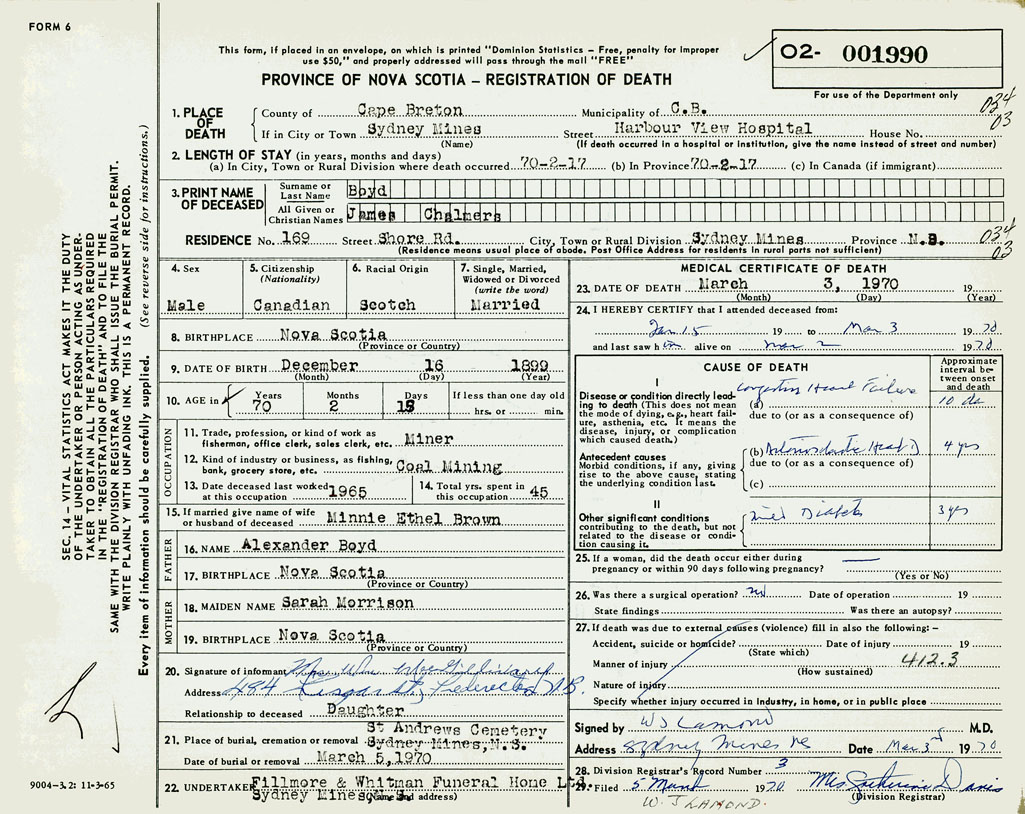 FORM 6
This form, if placed in an envelope, on which is printed "Dominion Statistics – Free, penalty for improper
use $50," and properly addressed will pass through the mail "FREE"
PROVINCE OF NOVA SCOTIA – REGISTRATION OF DEATH
O2- 001990
For use of the Department only
034
03
1. PLACE OF DEATH
County of Cape Breton Municipality of C.B.
If in City or Town Sydney Mines Street Harbour View Hospital House No.
(Name) (If death occurred in a hospital or institution, give the name instead of street and number)
2. LENGTH OF STAY (in years, months and days)
(a) In City, Town or Rural Division where death occurred 70-2-17 (b) In Province 70-2-17 (c) In Canada (if immigrant)
3. PRINT NAME OF DECEASED
Surname or Last Name Boyd
All Given or Christian Names James Chalmers
RESIDENCE No. 169 Street Shore Rd. City, Town or Rural Division Sydney Mines Province N.S.
(Residence means usual place of abode. Post Office Address for residents in rural parts not sufficient)
034
03
4. Sex Male
5. Citizenship (Nationality) Canadian
6. Racial Origin Scotch
7. Single, Married, Widowed or Divorced (write the word) Married
8. BIRTHPLACE Nova Scotia
(Province or Country)
9. DATE OF BIRTH December 16 1899
(Month) (Day) (Year)
10. AGE in Years Months Days If less than one day old
70 2 15 hrs. or min.
OCCUPATION
11. Trade, profession, or kind of work as fisherman, office clerk, sales clerk, etc. Miner
12. Kind of industry or business, as fishing, bank, grocery store, etc. Coal Mining
13. Date deceased last worked at this occupation 1965
14. Total yrs. spent in this occupation 45
15. If married give name of wife or husband of deceased Minnie Ethel Brown
FATHER
16. NAME Alexander Boyd
17. BIRTHPLACE Nova Scotia
(Province or Country)
MOTHER
18. MAIDEN NAME Sarah Morrison
19. BIRTHPLACE Nova Scotia
(Province or Country)
20. Signature of informant Mrs.
Address 484
Relationship to deceased Daughter
21. Place of burial, cremation or removal St Andrews Cemetery
Sydney Mines, N.S.
Date of burial or removal March 5,1970
22. UNDERTAKER Fillmore & Whitman Funeral Home Ltd
Sydney Mines
(Name and address)
MEDICAL CERTIFICATE OF DEATH
23. DATE OF DEATH March 3, 1970 19
(Month) (Day) (Year)
24. I HEREBY CERTIFY that I attended deceased from:
Jan 15 19 to Mar 3 1970
and last saw him alive on Mar 2 1970
CAUSE OF DEATH
Approximate interval between onset and death
I
Disease or condition directly leading to death (This does not mean the mode of dying, e.g., heart failure, asthenia, etc. It means the disease, injury, or complication which caused death.)
(a) Congestive Heart Failure 10 da
due to (or as a consequence of)
Antecedent causes
Morbid conditions, if any, giving rise to the above cause, stating the underlying condition last.
(b) Heart D 4 yrs
due to (or as a consequence of)
(c)
II
Other significant conditions contributing to the death, but not related to the disease or condition causing it.
Mild Diabetes 3 yrs
25. If a woman, did the death occur either during pregnancy or within 90 days following pregnancy?
(Yes or No)
26. Was there a surgical operation? no Date of operation 19
State findings Was there an autopsy?
27. If death was due to external causes (violence) fill in also the following: –
Accident, suicide or homicide? Date of injury 19
(State which)
Manner of injury 412.3
(How sustained)
Nature of injury
Specify whether injury occurred in Industry, in home, or in public place
Signed by WJ Lamond M.D.
Address Sydney Mines NS Date Mar 3rd 1970
28. Division Registrar's Record Number 3
29. Filed 5 March 1970 Mrs Catherine Davis
(Division Registrar)
W. J LAMOND.
SEC. 14 – VITAL STATISTICS ACT MAKES IT THE DUTY
OF THE UNDERTAKER OR PERSON ACTING AS UNDER-
TAKER TO OBTAIN ALL THE PARTICULARS REQUIRED
IN THE "REGISTRATION OF DEATH" AND TO FILE THE
SAME WITH THE DIVISION REGISTRAR WHO SHALL ISSUE THE BURIAL PERMIT.
WRITE PLAINLY WITH UNFADING INK. THIS IS A PERMANENT RECORD.
Every item of information should be carefully supplied. (See reverse side for instructions.)
9004–3.2: 11-3-65